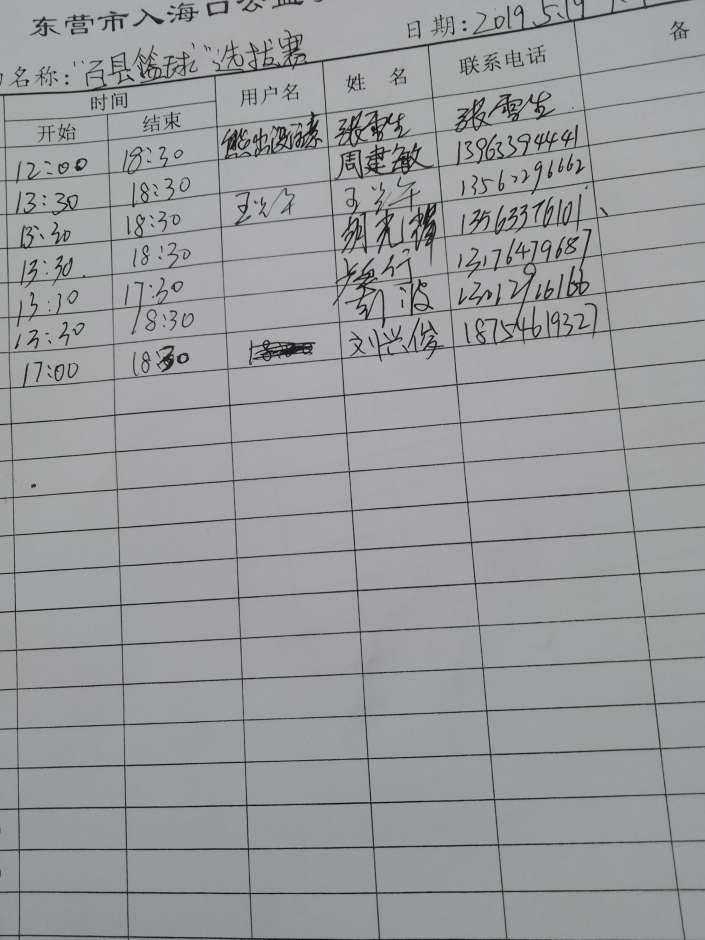 东营市入海口公益
日期:2019.5.19
名称:“百县篮球”选拔赛
时间 用户名 姓名 联系电话 备
开始 结束
12:00 18:30 熊出没注意 张雪生 张雪生
13:30 18:30 周建敏 13963394441
13:30 18:30 王兴午 王兴午 13562296662
13:30. 18:30 胡光 13563376101、
13:30 17:30 13176479687
13:30 18:30 波
17:00 18:30 刘兴俊 18754619327